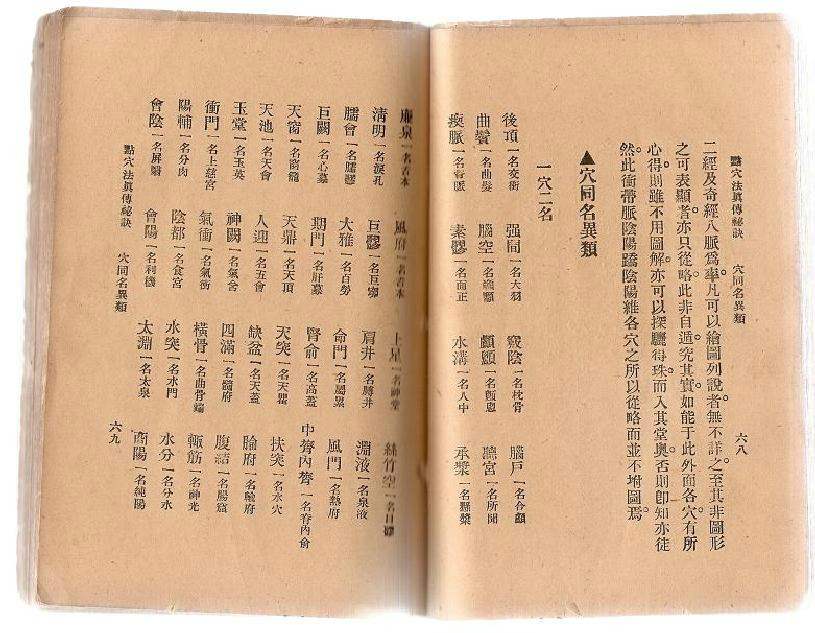 點穴法眞傳祕訣　穴同名異類　六八
二經及奇經八脈爲率凡可以繪圖列說者無不詳之至其非圖形
之可表顯者亦只從略此非自遁究其實如能于此外面各穴有所
心得則雖不用圖解亦可以探驪得珠而入其堂奧否則卽知亦徒
然此衝帶脈陰陽蹻陰陽維各穴之所以從略而並不坿圖焉
▲穴同名異類
一穴二名
後項一名交衝　强間一名大羽　竅陰一名枕骨　腦戶一名合顱
曲鬢一名曲髮　腦空一名顳顬　顱顖　聽宮一名所聞
瘈脈　素髎一名面正　水溝　承漿一名懸漿
廉泉一名舌本　風府一名舌本　上星一名神堂　絲竹空一名目髎
淸明一名淚孔　巨髎　肩井一名膊井　淵液一名泉液
臑會一名臑髎　大雅一名百勞　命門一名屬累　風門一名熱府
巨闕一名心募　期門一名肝募　腎俞一名高蓋　中膂內膂一名脊內俞
天窗一名窗籠　天鼎一名天頂　天突一名天瞿　扶突一名水穴
天池一名天會　人迎一名五會　缺盆一名天蓋　腧府一名輸府
玉堂一名玉英　神闕一名氣舍　四滿一名髓府　腹結一名腸窟
衝門一名上慈宮　氣衝一名氣衝　橫骨一名曲骨端　輒筋一名神光
陽輔一名分肉　陰都一名食宮　水突一名水門　水分一名分水
會陰一名屏翳　會陽一名利機　太淵一名太泉　商陽一名絕陽
點穴法眞傳祕訣　穴同名異類　六九